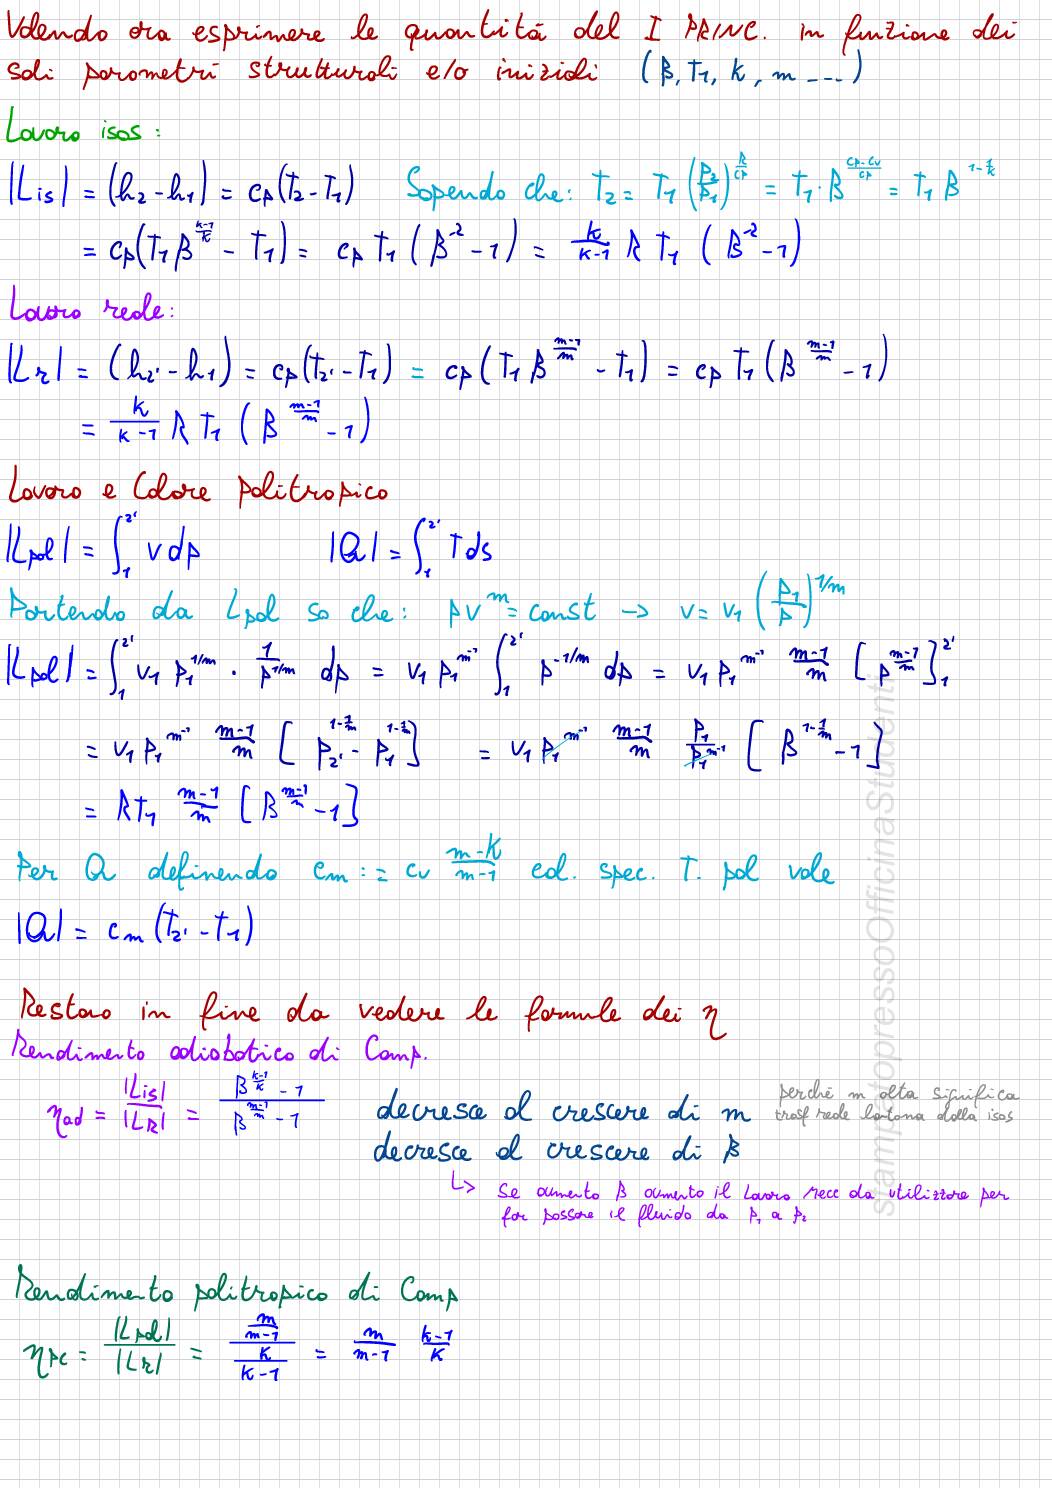 Volendo ora esprimere le quantità del I PRINC. in funzione dei
soli parametri strutturali e/o iniziali (β, T₁, k, m ---)
Lavoro isos:
|Lis| = (h₂-h₁) = cp(T₂-T₁) Sapendo che: T₂ = T₁ (p₂/p₁)^(R/cp) = T₁·β^((cp-cv)/cp) = T₁ β^(1-1/k)
= cp(T₁β^((k-1)/k) - T₁) = cp T₁ (β^-2 -1) = k/(k-1) R T₁ (β^-2 -1)
Lavoro reale:
|Lr| = (h₂'-h₁) = cp(T₂'-T₁) = cp(T₁β^((m-1)/m) - T₁) = cp T₁(β^((m-1)/m) -1)
= k/(k-1) R T₁ (β^((m-1)/m) -1)
Lavoro e Calore politropico
|Lpol| = ∫₁^2' v dp |Q| = ∫₁^2' T ds
Partendo da Lpol so che: pv^m = const → v = v₁ (p₁/p)^(1/m)
|Lpol| = ∫₁^2' v₁ p₁^(1/m) · 1/p^(1/m) dp = v₁ p₁^(m⁻¹) ∫₁^2' p^(-1/m) dp = v₁ p₁^(m⁻¹) (m-1)/m [p^((m-1)/m)]₁^2'
= v₁ p₁^(m⁻¹) (m-1)/m [p₂'^(1-1/m) - p₁^(1-1/m)] = v₁ p₁^(m⁻¹) (m-1)/m p₁/p₁^(m⁻¹) [β^(1-1/m) -1]
= RT₁ (m-1)/m [β^((m-1)/m) -1]
Per Q definendo cm := cv (m-k)/(m-1) col. spec. T. pol vale
|Q| = cm (T₂' - T₁)
Restano in fine da vedere le formule dei η
Rendimento adiabatico di Comp.
ηad = |Lis|/|LR| = (β^((k-1)/k) -1)/(β^((m-1)/m) -1) decresce al crescere di m perché m alta significa
trasf reale lontana dalla isos
decresce al crescere di β
↳ Se aumento β aumento il Lavoro Mecc da utilizzare per
far passare il fluido da p₁ a p₂
Rendimento politropico di Comp
ηpc = |Lpol|/|Lr| = (m/(m-1))/(k/(k-1)) = m/(m-1) (k-1)/k
stampatopressoOfficinaStudenti